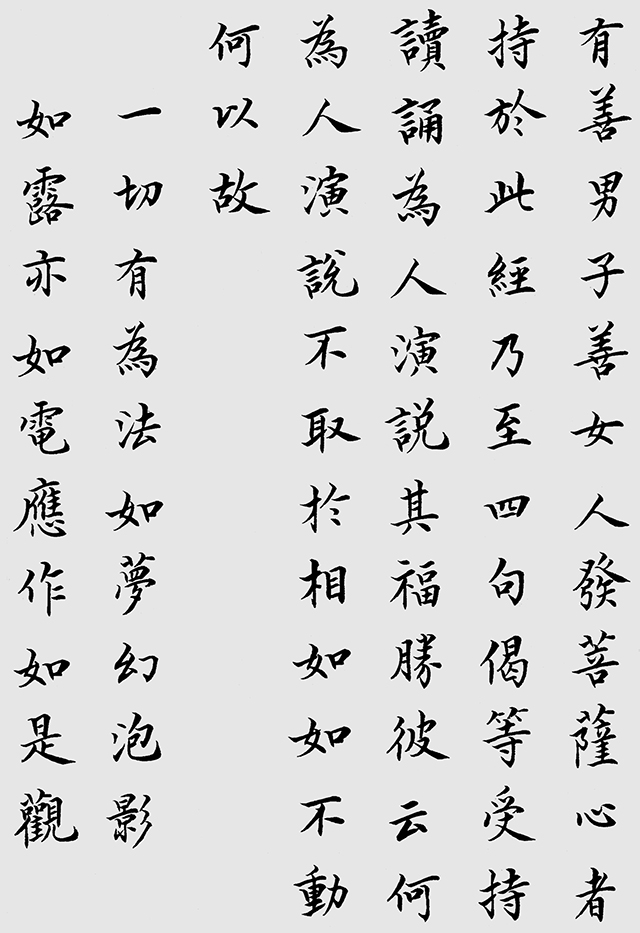 有善男子善女人發菩薩心者
持於此經乃至四句偈等受持
讀誦為人演說其福勝彼云何
為人演說不取於相如如不動
何以故
一切有為法如夢幻泡影
如露亦如電應作如是觀